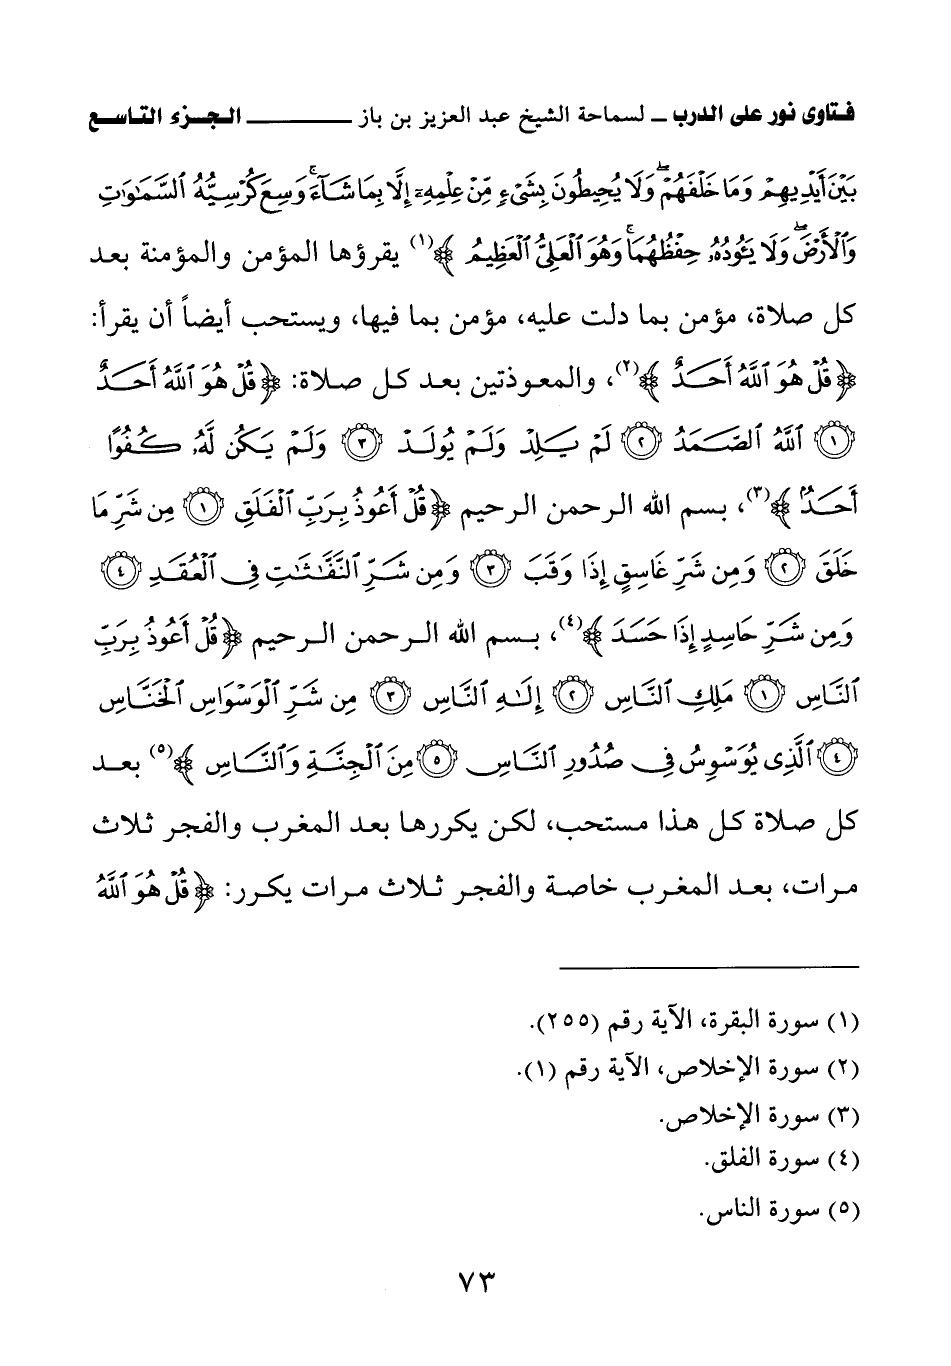 فتاوى نور على الدرب ــ لسماحة الشيخ عبد العزيز بن باز ـــــــــــــ الجزء التاسع
بَيْنَ أَيْدِيهِمْ وَمَا خَلْفَهُمْ ۖ وَلَا يُحِيطُونَ بِشَيْءٍ مِّنْ عِلْمِهِۦٓ إِلَّا بِمَا شَآءَ ۚ وَسِعَ كُرْسِيُّهُ ٱلسَّمَٰوَٰتِ
وَٱلْأَرْضَ ۖ وَلَا يَـُٔودُهُۥ حِفْظُهُمَا ۚ وَهُوَ ٱلْعَلِىُّ ٱلْعَظِيمُ ﴾(١) يقرؤها المؤمن والمؤمنة بعد
كل صلاة، مؤمن بما دلت عليه، مؤمن بما فيها، ويستحب أيضاً أن يقرأ:
﴿ قُلْ هُوَ ٱللَّهُ أَحَدٌ ﴾(٢)، والمعوذتين بعد كل صلاة: ﴿ قُلْ هُوَ ٱللَّهُ أَحَدٌ
(١) ٱللَّهُ ٱلصَّمَدُ (٢) لَمْ يَلِدْ وَلَمْ يُولَدْ (٣) وَلَمْ يَكُن لَّهُۥ كُفُوًا
أَحَدٌۢ ﴾(٣)، بسم الله الرحمن الرحيم ﴿ قُلْ أَعُوذُ بِرَبِّ ٱلْفَلَقِ (١) مِن شَرِّ مَا
خَلَقَ (٢) وَمِن شَرِّ غَاسِقٍ إِذَا وَقَبَ (٣) وَمِن شَرِّ ٱلنَّفَّٰثَٰتِ فِى ٱلْعُقَدِ (٤)
وَمِن شَرِّ حَاسِدٍ إِذَا حَسَدَ ﴾(٤)، بسم الله الرحمن الرحيم ﴿ قُلْ أَعُوذُ بِرَبِّ
ٱلنَّاسِ (١) مَلِكِ ٱلنَّاسِ (٢) إِلَٰهِ ٱلنَّاسِ (٣) مِن شَرِّ ٱلْوَسْوَاسِ ٱلْخَنَّاسِ
(٤) ٱلَّذِى يُوَسْوِسُ فِى صُدُورِ ٱلنَّاسِ (٥) مِنَ ٱلْجِنَّةِ وَٱلنَّاسِ ﴾(٥) بعد
كل صلاة كل هذا مستحب، لكن يكررها بعد المغرب والفجر ثلاث
مرات، بعد المغرب خاصة والفجر ثلاث مرات يكرر: ﴿ قُلْ هُوَ ٱللَّهُ
(١) سورة البقرة، الآية رقم (٢٥٥).
(٢) سورة الإخلاص، الآية رقم (١).
(٣) سورة الإخلاص.
(٤) سورة الفلق.
(٥) سورة الناس.
٧٣